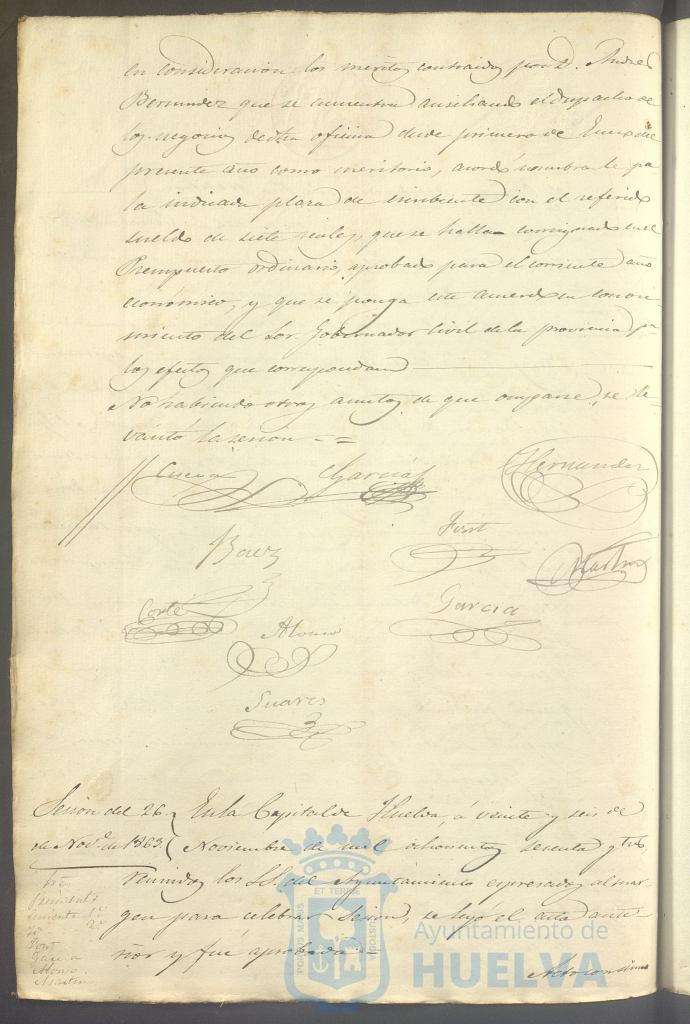 en consideracion los meritos contraidos por D. Andres
Bermudez que se encuentra auxiliando el despacho de
los negocios de dha oficina desde primero de Enero del
presente año como meritorio, acordó nombrarle pa
la indicada plaza de escribiente con el referido
sueldo de siete reales, que se halla consignado en el
Presupuesto ordinario, aprobado para el corriente año
económico, y que se ponga este acuerdo en conoci-
miento del Sor. Gobernador Civil de la provincia pa
los efectos que correspondan
No habiendo otros asuntos de que ocuparse, se le-
vantó la sesion
Garcia
Hernandez
Baez
Font
Martinez
Corté
Garcia
Alonso
Suares
Sesion del 26
de Nove. de 1863.
En la Capital de Huelva, á veinte y seis de
Noviembre de mil ochocientos sesenta y tres
reunidos los SS. del Ayuntamiento espresados al mar-
gen para celebrar Sesion, se leyó el acta ante-
rior y fué aprobada
Font
Garcia
Alonso
Acto continuo
PORTUS MARIS ET TERRE CUSTODIA
Ayuntamiento de
HUELVA